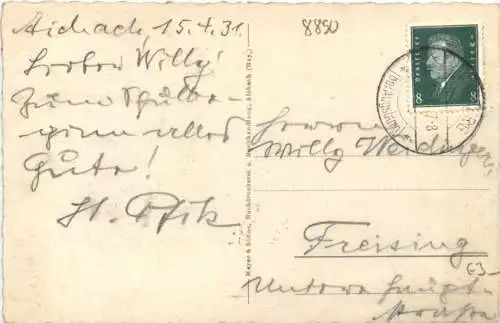 Aichach, 15.4.31.
8850
Lieber Willy!
Zum Schulbe-
ginn alles
Gute!
H. Pfik
Deutsches Reich
8 8
Mayer & Söhne, Buchdruckerei u. Buchhandlung, Aichach (Bay.)
Herrn
Willy
Freising
Untere Haupt-
strasse
63-